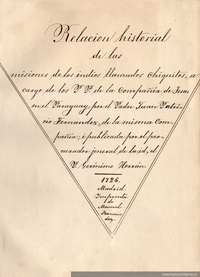 Relacion historial
de las
misiones de los indios llamados Chiquitos, a
cargo de los P P de la Compañia de Jesus
en el Paraguay, por el Padre Juan Patri-
cio Fernandez, de la misma Com-
pañia; i publicada por el pro-
curador jeneral, de la id, el
P. Gerónimo Herrán.
1726.
Madrid.
Imprenta
de
Manuel
Fernan-
dez,